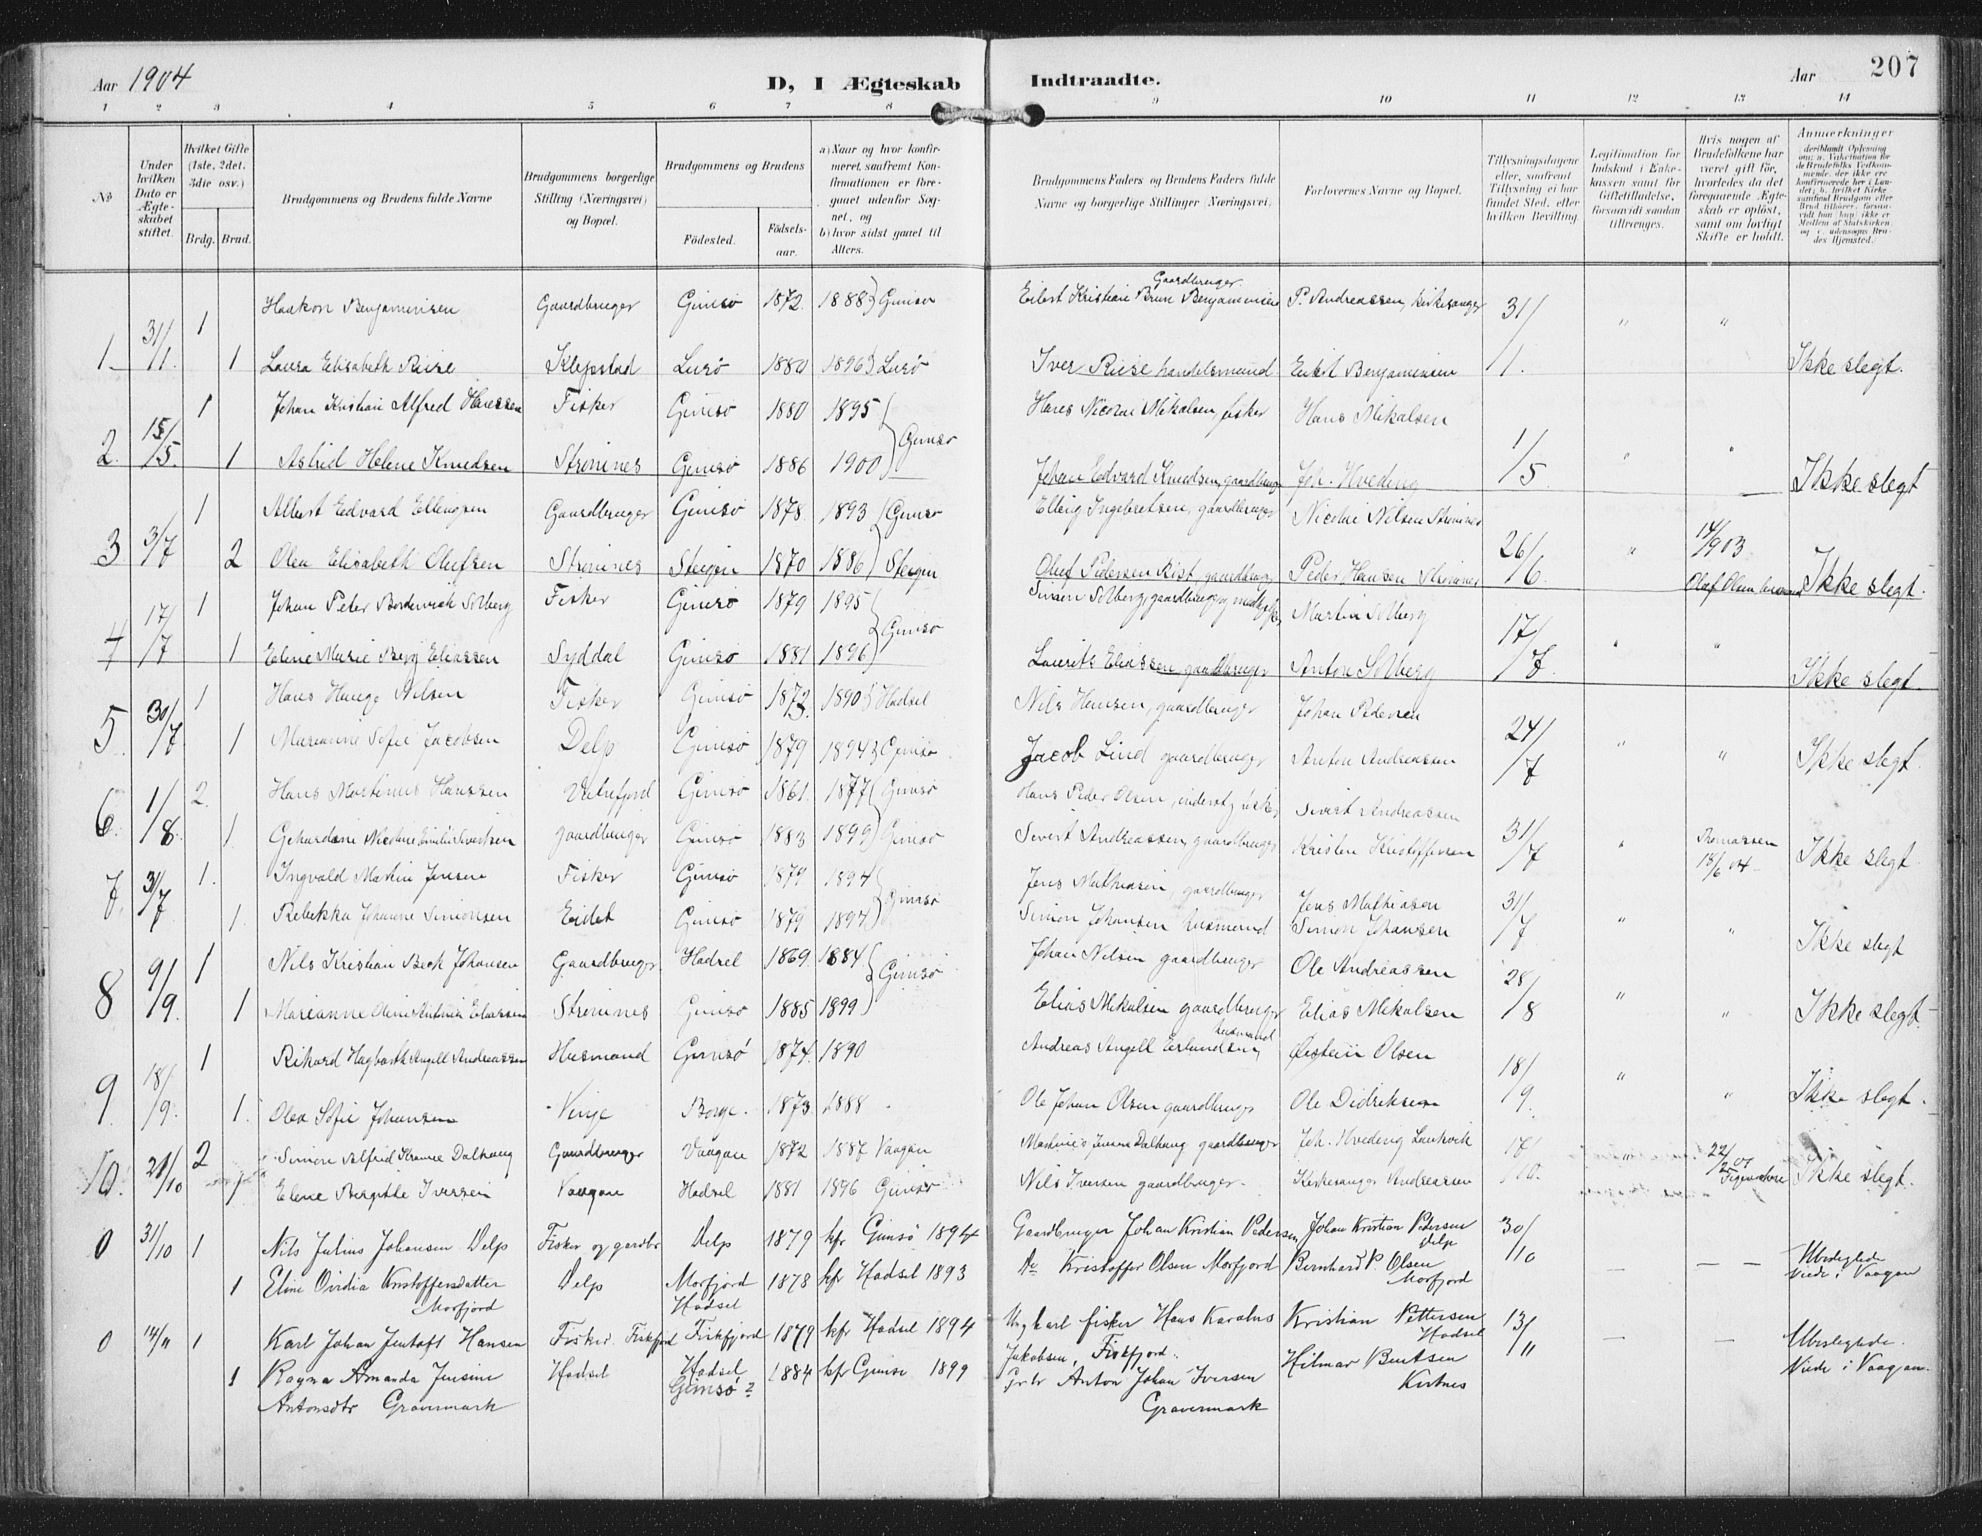 Aar 1904 D, I Ægteskab Indtraadte. Aar 207
1 2 3 4 5 6 7 8 9 10 11 12 13 14
No
Under hvilken Dato er Ægteskabet stiftet.
Hvilket Gifte (1ste, 2det, 3die osv.)
Brdg. Brud.
Brudgommens og Brudens fulde Navne
Brudgommens borgerlige Stilling (Næringsvei) og Bopæl.
Brudgommens og Brudens
Födested. Födselsaar.
a) Naar og hvor konfirmeret, saafremt Konfirmationen er foregaaet udenfor Sognet, og
b) hvor sidst gaaet til Alters.
Brudgommens Faders og Brudens Faders fulde Navne og borgerlige Stillinger (Næringsvei).
Forlovernes Navne og Bopæl.
Tillysningsdagene eller, saafremt Tillysning ei har fundet Sted, efter hvilken Bevilling.
Legitimation for Indskud i Enkekassen samt for Giftetilladelse, forsaavidt saadan tiltrænges.
Hvis nogen af Brudefolkene har været gift før, hvorledes da det foregaaende Ægteskab er opløst, samt om lovligt Skifte er holdt.
Anmærkninger
1 31/1 1 Haakon Benjaminsen Gaardbruger Gimsø 1872 1888 Gimsø Eilert Kristian Brun Benjaminsen Gaardbruger P. Andreassen, kirkesanger 31/1 " "
1 Laura Elisabeth Riise Klepstad Lurø 1880 1896 Lurø Iver Riise handelsmand Eilert Benjaminsen Ikke slegt.
2. 15/5. 1 Johan Kristian Alfred Hanssen Fisker Gimsø 1880 1895 Gimsø Hans Nicolai Mikalsen, fisker Hans Mikalsen 1/5 " "
1 Astrid Helene Knudsen Strømnes Gimsø 1886 1900 Johan Edvard Knudsen, gaardbruger Joh. Hveding Ikke slegt
3 3/7 1 Albert Edvard Ellingsen Gaardbruger Gimsø 1878 1893 Gimsø Elling Ingebretsen, gaardbruger Nicolai Nilsen Strømnes 26/6 "
2 Olea Elisabeth Olufsen Strømnes Steigen 1870 1886 Steigen Oluf Pedersen Rist, gaardbrug. Peder Hansen Strømnes Olaf Olsen Ikke slegt.
4 17/7 1 Johan Peter Solberg Fisker Gimsø 1879 1895 Gimsø Solberg, gaardbruger Martin Solberg 17/7 " "
1 Eline Marie Berg Eliassen Syddal Gimsø 1881 1896 Laurits Eliassen, gaardbruger Anton Solberg Ikke slegt.
5 30/7 1 Hans Nilsen Fisker Gimsø 1873 1890 Hadsel Nils Hansen, gaardbruger Johan Pedersen 24/7 " "
1 Marianne Sofie Jacobsen Delp Gimsø 1879 1894 Gimsø Jacob Lind gaardbruger Anton Andreassen Ikke slegt.
6. 1/8. 2 Hans Martinus Hanssen Vaterfjord Gimsø 1861 1877 Gimsø Hans Peder Olsen, fisker Sivert Andreassen 31/7 "
1. gaardbruger Gimsø 1883 1899 Gimsø Sivert Andreassen, gaardbruger Kristen Kristoffersen 18/6 04 Ikke slegt
7. 31/7 1. Ingvald Martin Jensen Fisker Gimsø 1879 1894 Gimsø Jens Mathiasen, gaardbruger Jens Mathiasen 31/7 " "
1. Rebekka Johanne Simonsen Eidet Gimsø 1879 1894 Simon Johansen husmand Simon Johansen Ikke slegt
8 9/9. 1 Nils Kristian Beck Johansen Gaardbruger Hadsel 1869. 1884 Gimsø Johan Nilsen gaardbruger Ole Andreassen 28/8 " "
1 Marianne Oline Eliassen Strømnes Gimsø 1885 1899 Elias Mikalsen gaardbruger Elias Mikalsen Ikke slegt.
9. 18/9. 1 Rikard Hagbarth Angell Andreassen Husmand Gimsø 1874. 1890 Andreas Angell Erlandsen, husmand Øistein Olsen 18/9. " "
1. Olea Sofie Johansen Vinje Borge. 1873 1888 Ole Johan Olsen gaardbruger Ole Didriksen Ikke slegt.
10. 21/10 2 Simon Alfred Dalhaug Gaardbruger Vaagan 1872 1887 Vaagan Dalhaug gaardbruger Joh. Hveding Laukvik /10. " 22/
1 Elene Bergitte Iversen Vaagan Hadsel 1881 1896 Gimsø Nils Iversen gaardbruger. Kirkesanger Andreassen Ikke slegt.
0 31/10 1 Nils Julius Johansen Delp Fisker og gardbr Delp 1879 kfr Gimsø 1894 Gaardbruger Johan Kristian Pedersen Johan Kristian Pedersen Delp 30/10 — — —
1 Eline Ovidia Kristoffersdatter Morfjord Delp Morfjord Hadsel 1878 kfr Hadsel 1893 Kristoffer Olsen Morfjord Bernhard P. Olsen Morfjord Viede i Vaagan
0 14/11 1 Karl Johan Jentoft Hansen Fisker. Fiskfjord Fiskfjord 1879 kfr Hadsel 1894 Ungkarl fisker Hans Karolus Kristian Pettersen Hadsel 13/11 — —
1 Ragna Amanda Jensine Hadsel Hadsel 1884 kfr Gimsø 1899 Jakobsen, Fiskfjord. Hilmar Bentsen
Antonsdtr Gravermark Gimsø? Gbr Anton Johan Iversen Gravermark Viede i Vaagan.